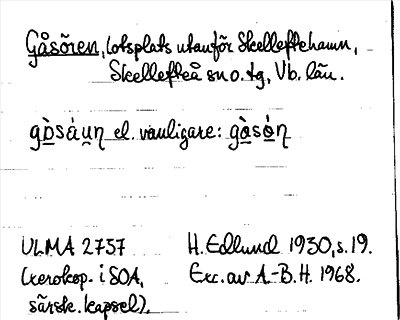 Gåsören, lotsplats utanför Skelleftehamn,
Skellefteå sn o. tg, Vb. län.
el. vanligare:
ULMA 2757 H. Edlund 1930, s. 19.
(xerokop. i SOA, Exc. av A.-B. H. 1968.
särsk. kapsel).